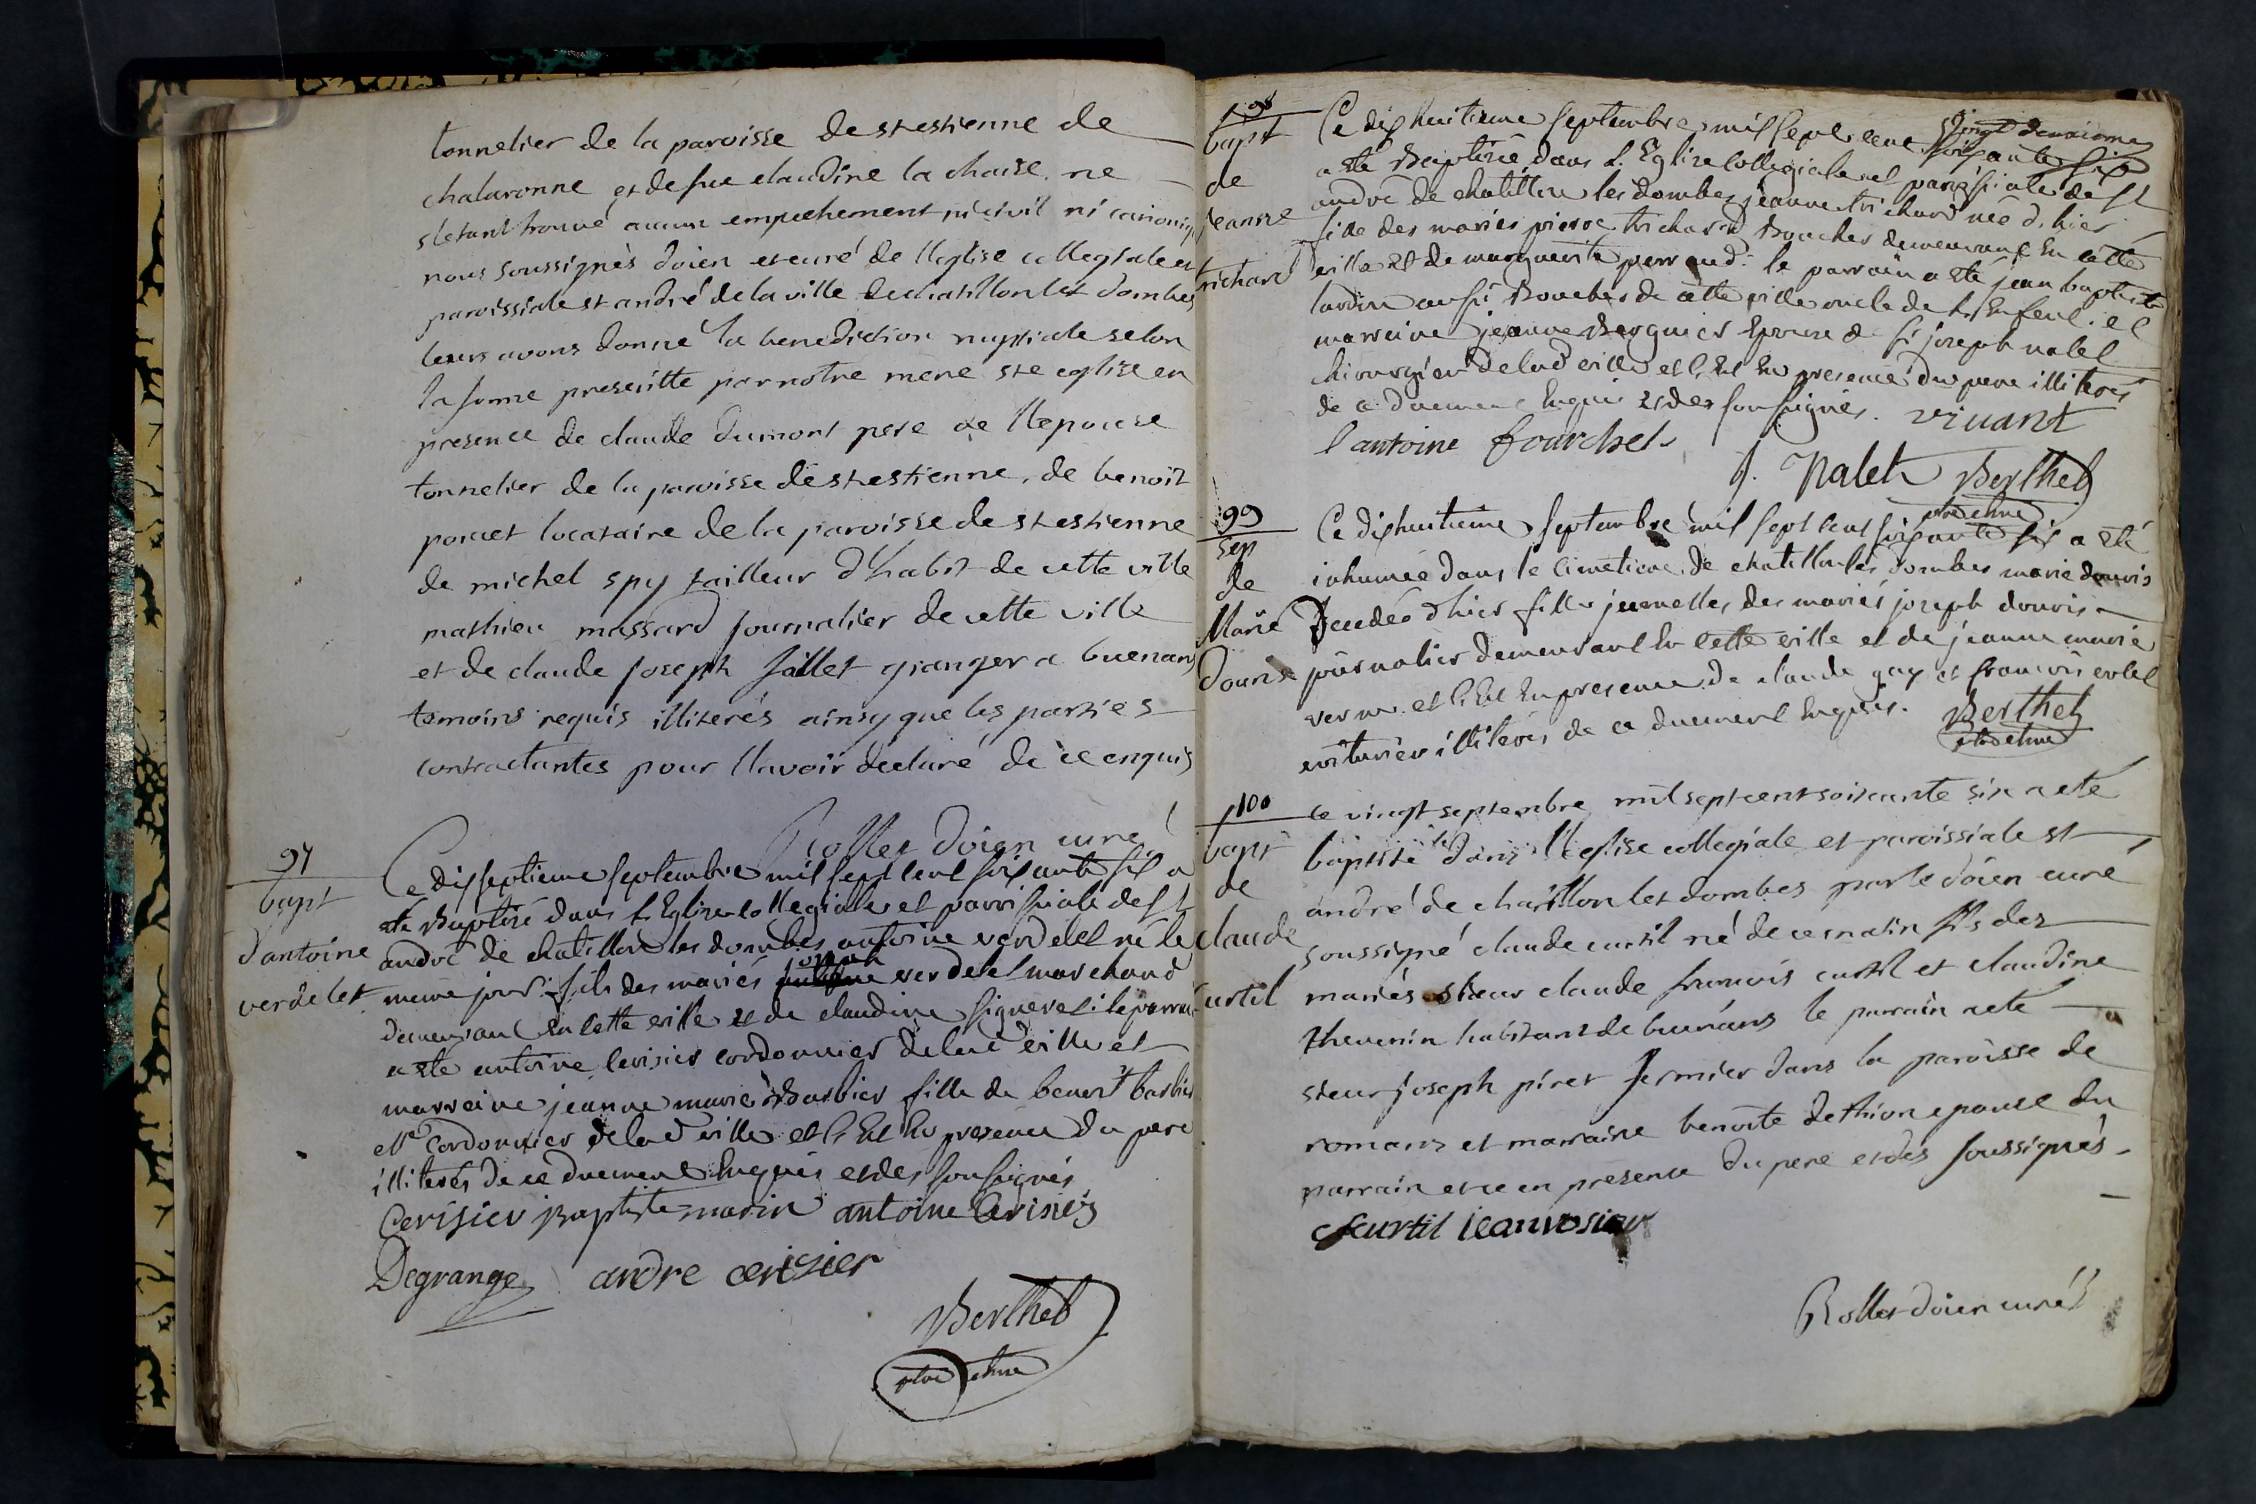 tonnelier de la paroisse de st estienne de
chalaronne et de feue claudine la chaize. ne
s'etant trouvé aucun empechement ni civil ni canoniq
nous soussignès doien et curé de l'eglise collegiale et
paroissiale st andré de la ville de chatillon les dombes
leurs avons donné la benediction nuptiale selon
la forme prescritte par notre mere ste eglise en
presence de claude dumont pere de l'epouse
tonnelier de la paroisse de st estienne, de benoit
poncet locataire de la paroisse de st estienne
de michel spy tailleur d'habit de cette ville
mathieu massard journalier de cette ville
et de claude joseph sallet granger a buenans
temoins requis illiterés ainsy que les parties
contractantes pour l'avoir declaré de ce enquis
Rollet doien curé
97
bapt
d'antoine
verdelet
Ce dixseptieme septembre mil sept cent soixante six a
été Baptisé dans L'Eglise collegiale et parroissiale de st
andré de chatillon les dombes antoine verdelet né le
meme jour fils des mariés joseph verdelet marchand
demeurant en cette ville et de claudine signeret. le parrain
a eté antoine cerisier cordonnier de lad ville et
marreine jeanne marie Barbier fille de benoit barbier
Me cordonnier de lad ville et c'est en presence du pere
illiterés de ce duement enquis et des soussignés
Cerisier Baptiste marin antoine Cerisier
Degrange andre cerisier
Berthet
ptre chne
98
bapt
de
jeanne
trichard
Ce dixhuitieme septembre mil sept cent soixante six
a été Baptisée dans L'Eglise collegiale et paroissiale de st
andré de chatillon les dombes jeanne trichard née d'hier
fille des mariés pierre trichard Boucher demeurant en cette
ville et de marguerite perraud. le parrain a eté jean baptiste
lardin aussi Boucher de cette ville oncle de L'Enfent. et
marraine jeanne Berguier epouse de sr joseph nalet
chirurgien de lad ville et c'est en presence du pere illiteré
de ce duement enquis et des soussignés. vivant
l'antoine fourchet
J. Nalet Berthet
ptre chne
99
sep
de
Marie
douris
Ce dixhuitieme septembre mil sept cent soixante six a eté
inhumée dans le cimetiere de chatillon les dombes marie douris
decedée d'hier fille jumelle des mariés joseph douris
journalier demeurant en cette ville et de jeanne marie
verne. et c'est en presence de claude gay et francois
voiturier illiterés de ce duement enquis. Berthet
ptre chne
100
bapt
de
claude
curtil
ce vingt septembre mil sept cent soixante six a eté
baptisé dans l'eglise collegiale et paroissiale st
andré de chatillon les dombes par le doien curé
soussigné claude curtil né de ce matin fils des
mariés sieur claude francois curtil et claudine
thevenin habitant de buénans le parrain a eté
sieur joseph piret fermier dans la paroisse de
romans et marraine benoite dethion epouse du
parrain et ce en presence du pere et des soussignés
cfcurtil jeanrosier
Rollet doien curé